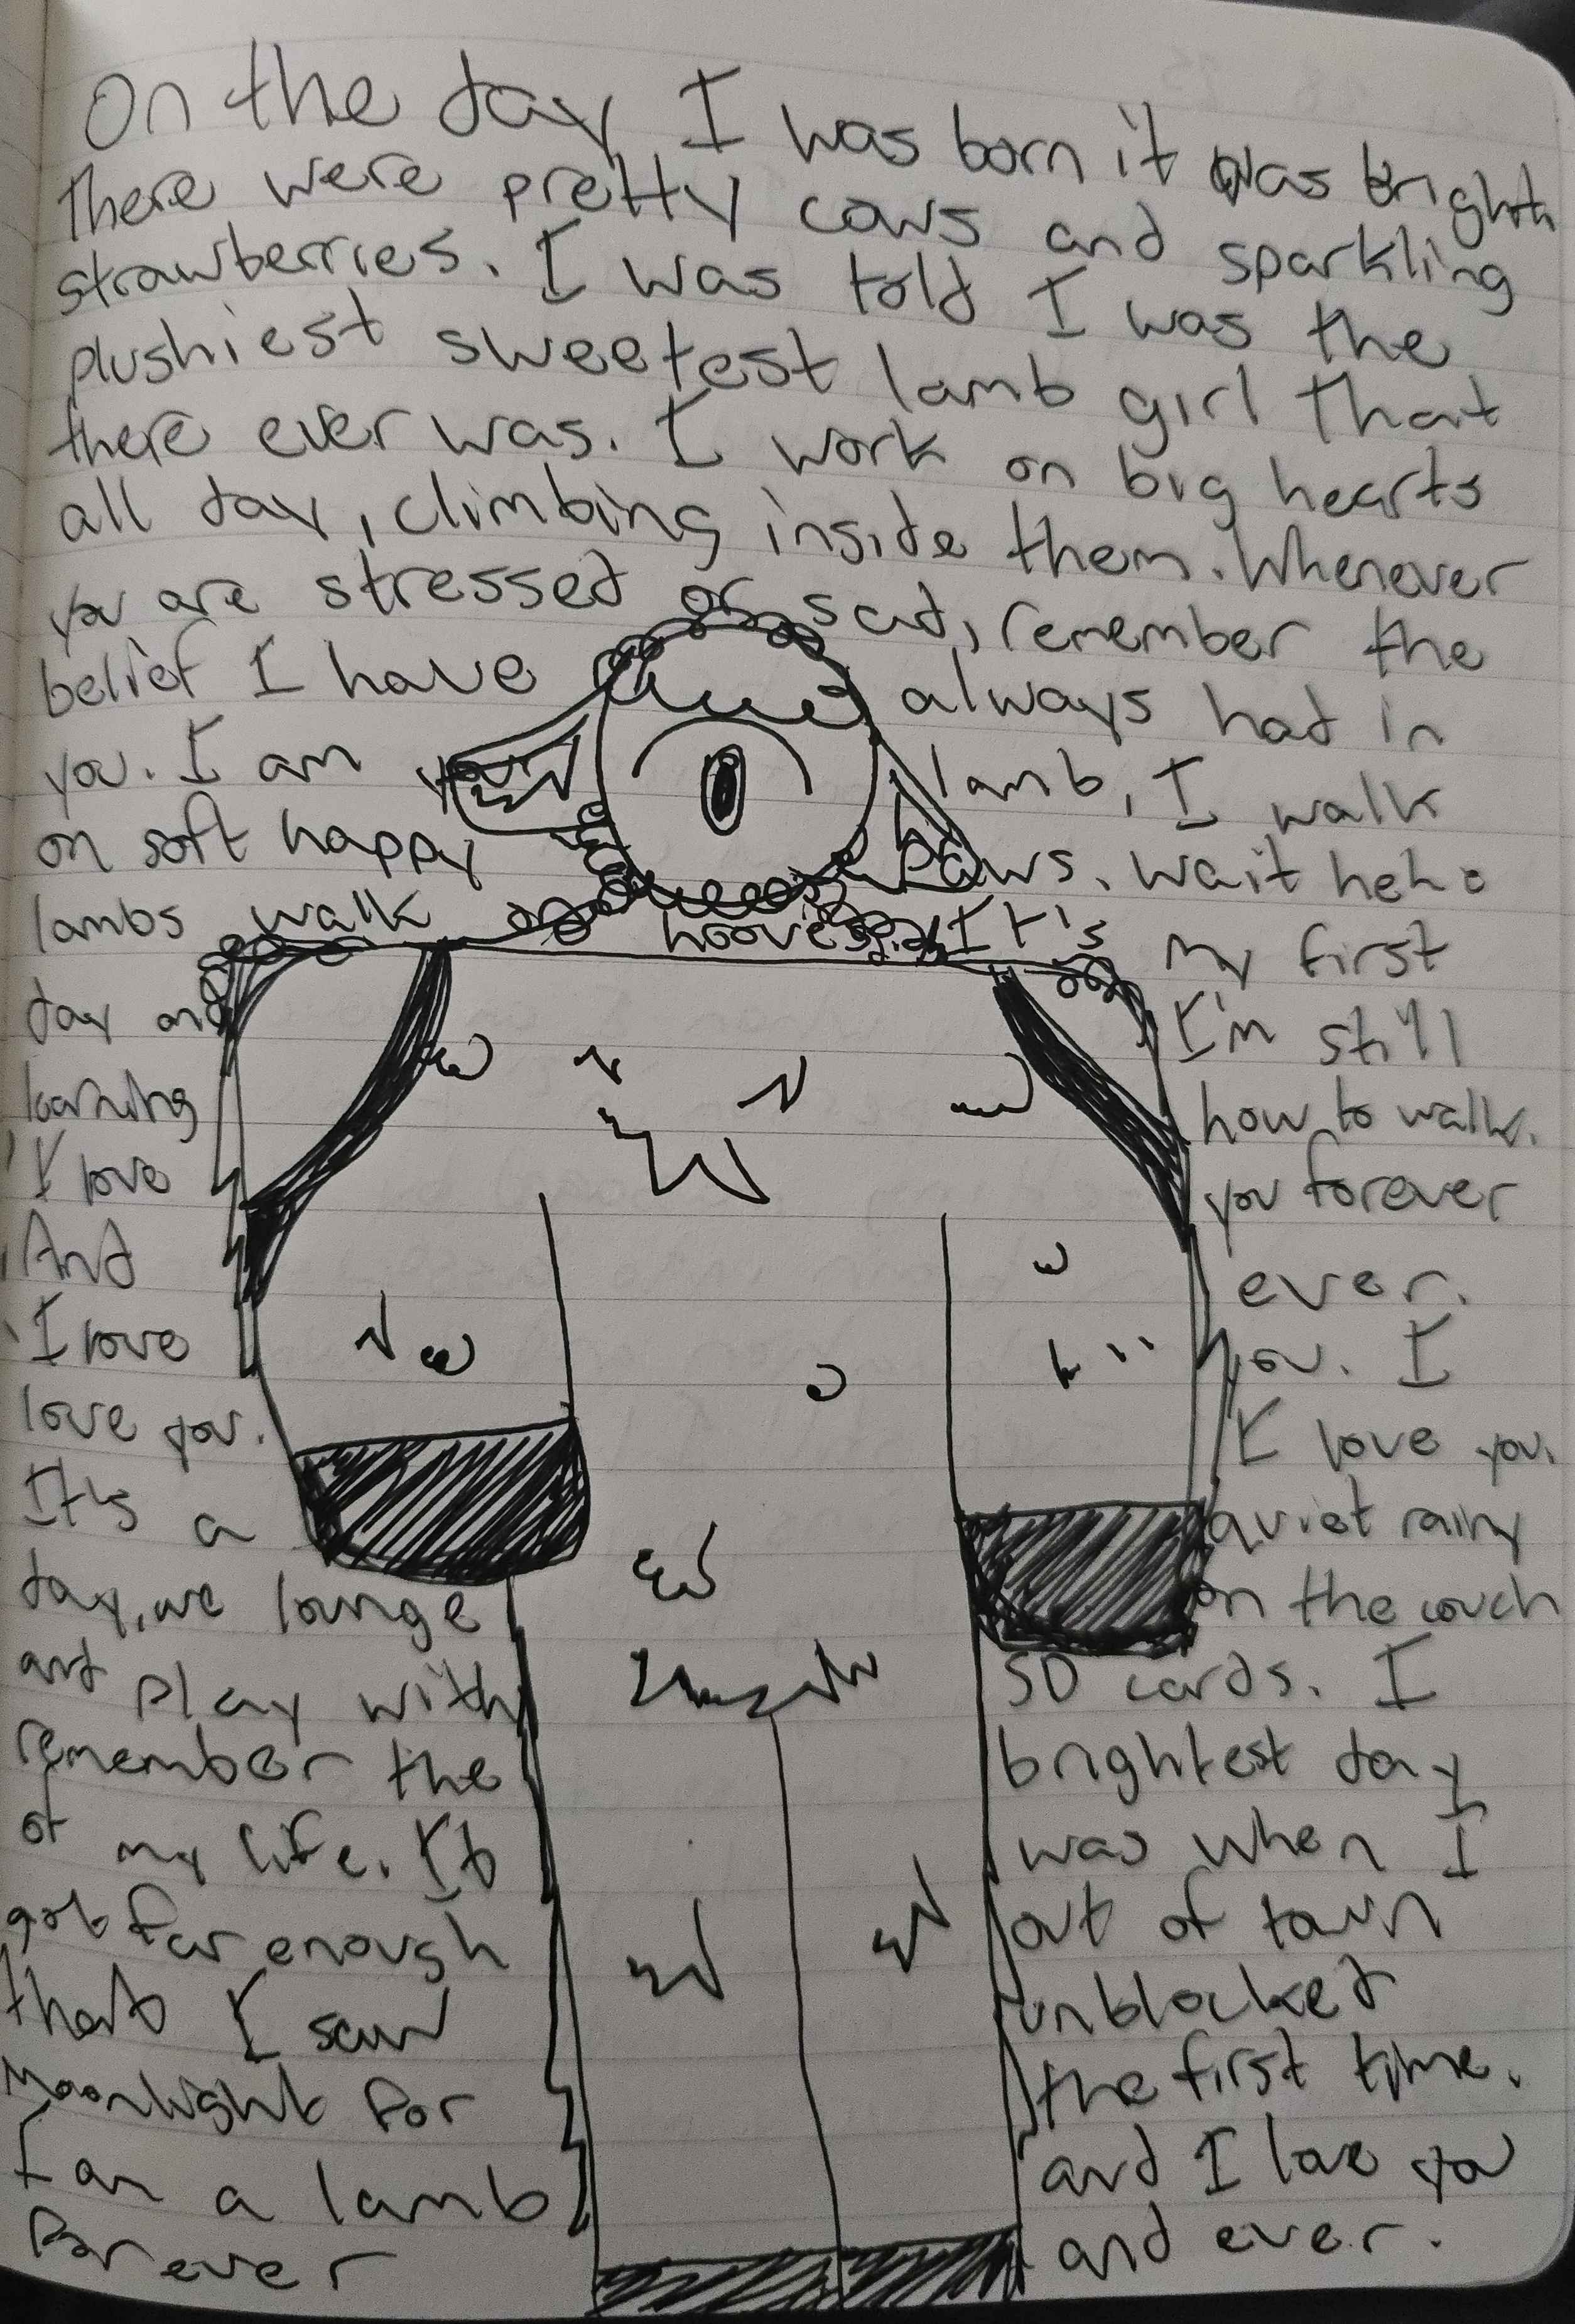 On the day I was born it was bright
there were pretty cows and sparkling
strawberries. I was told I was the
plushiest sweetest lamb girl that
there ever was. I work on big hearts
all day, climbing inside them. Whenever
you are stressed or sad, remember the
belief I have always had in
you. I am your lamb, I walk
on soft happy paws. Wait hehe
lambs walk hooves It's my first
day and I'm still
learning how to walk.
I love you forever
And ever.
I love you. I
love you. I love you.
It's a quiet rainy
day, we lounge on the couch
and play with SD cards. I
remember the brightest day
of my life. It was when I
got far enough out of town
that I saw unblocked
moonlight for the first time.
I am a lamb and I love you
forever and ever.